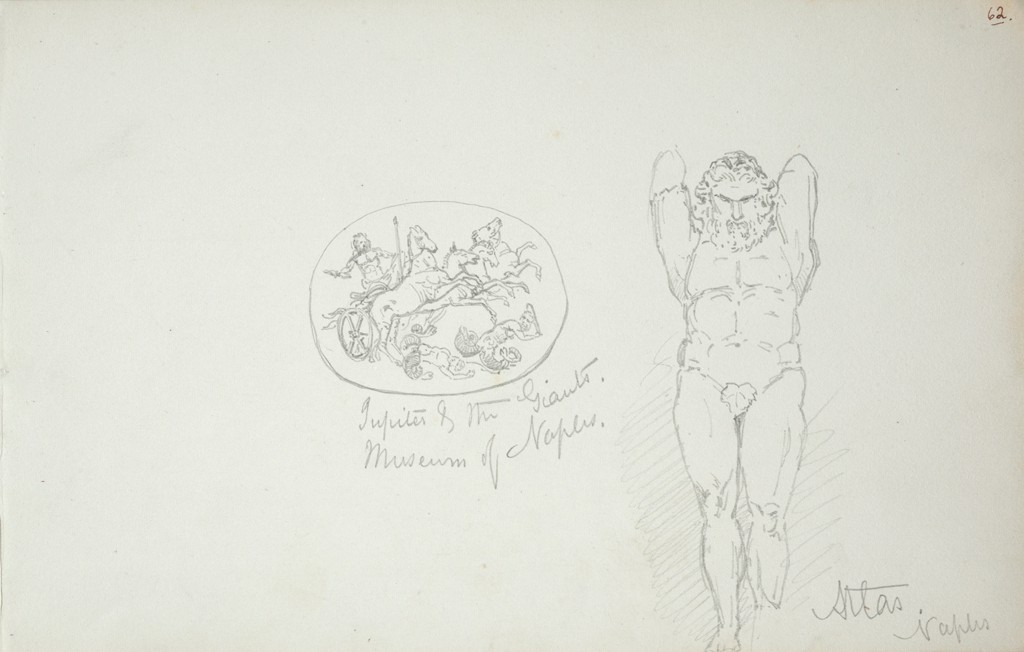 62.
Jupiter & the Giants.
Museum of Naples.
Atlas
Naples